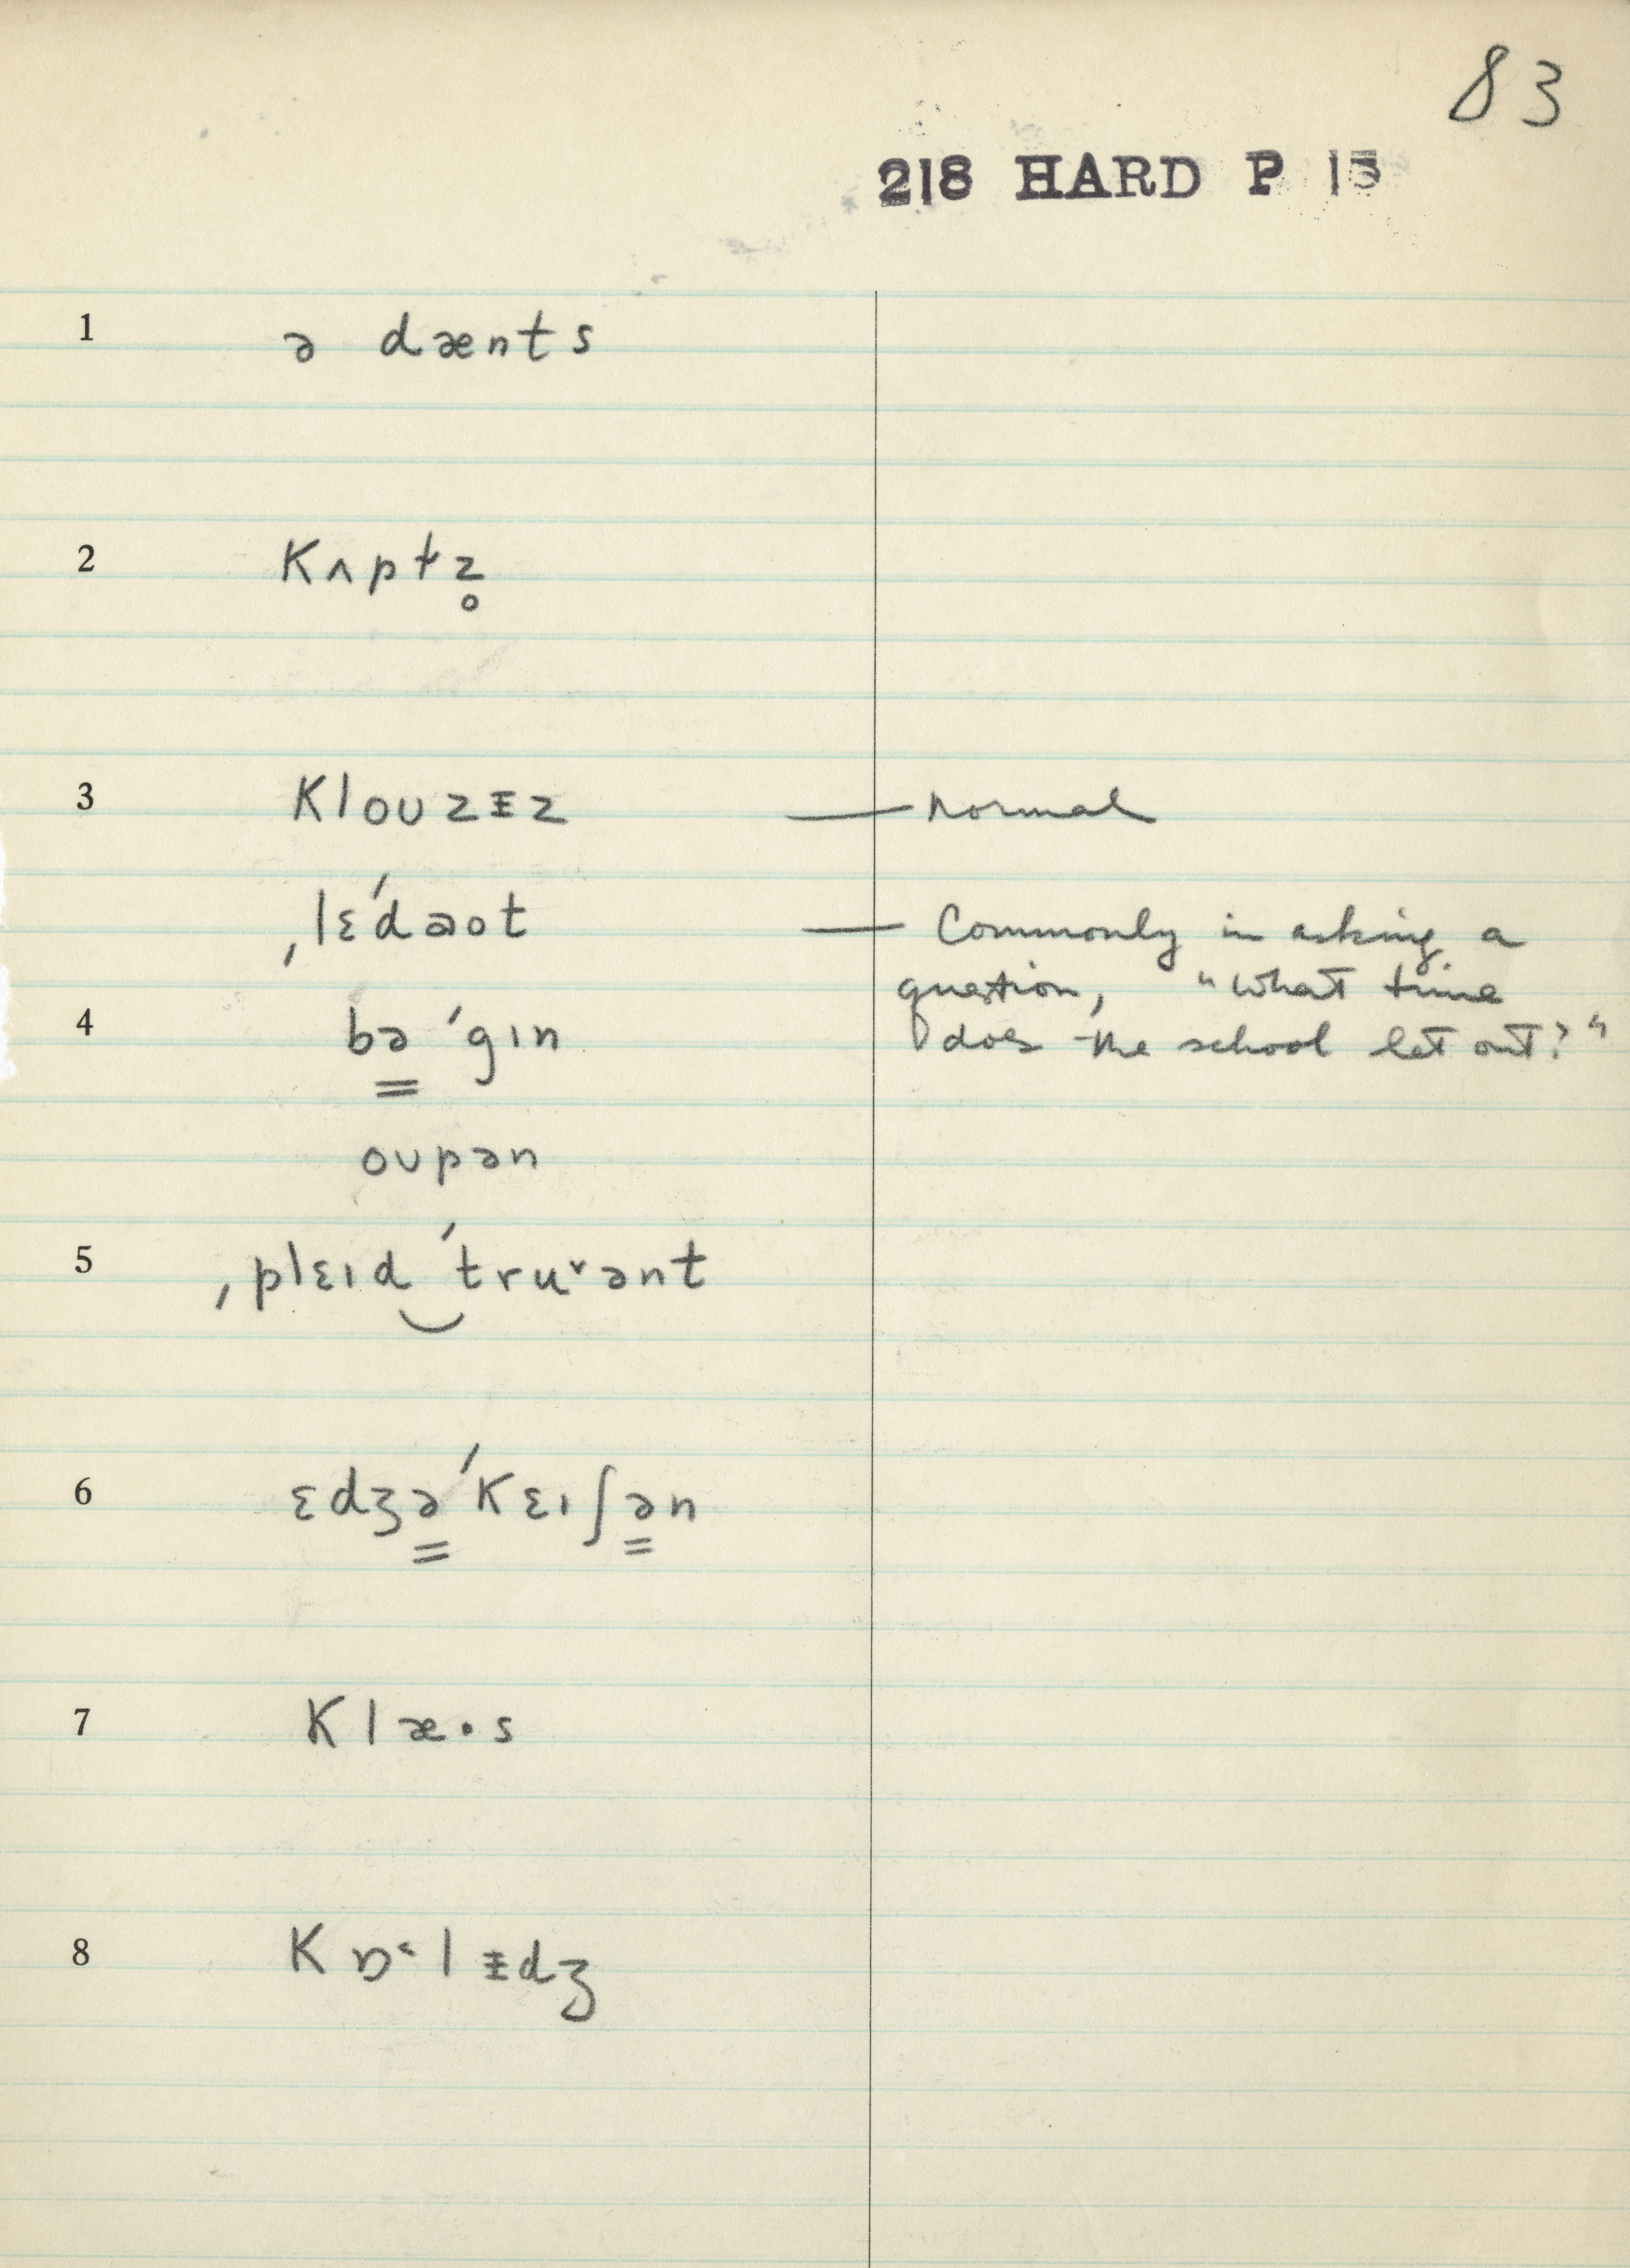 83
218 HARD P 13
1 ə dænts
2 Kʌptz̥
3 Klouzɪ̵z — normal
ˌlɛˈdəot — Commonly in asking a
question, "What time
4 bə̳ ˈgɪn does the school let out?"
oupən
5 ˌplɛɪd‿ˈtruᵛənt
6 ɛdʒə̳ˈKɛɪʃə̳n
7 Klæ·s
8 Kɒ˂lɪ̵dʒ